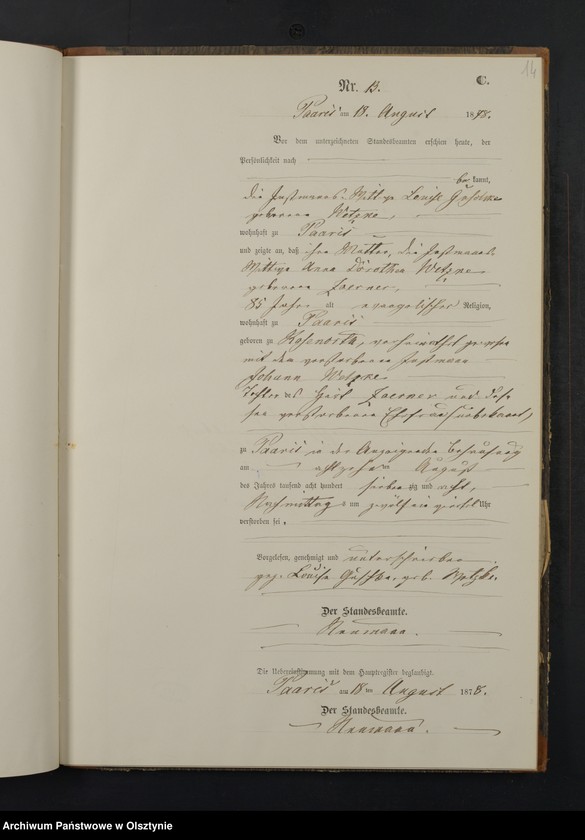 14
C.
Nr. 13.
Paaris am 18. August 1878.
Vor dem unterzeichneten Standesbeamten erschien heute, der
Persönlichkeit nach
be kannt,
die Instmanns Wittwe Louise
geborene Wetzke,
wohnhaft zu Paaris
und zeigte an, daß ihre Mutter, die Instmanns
Wittwe Anna Dorothea Wetzke
geborene
85 Jahre alt evangelischer Religion,
wohnhaft zu Paaris
geboren zu Rosenorth, verheirathet gewesen
mit dem verstorbenen Instmann
Johann Wetzke
Tochter des und des
sen verstorbenen Ehefrau (unbekannt)
zu Paaris in der Anzeigende Behausung
am achtzehn ten August
des Jahres tausend acht hundert sieben zig und acht,
Nachmittag s um zwölf ein viertel Uhr
verstorben sei.
Vorgelesen, genehmigt und unterschrieben
gez. Louise geb. Wetzke.
Der Standesbeamte.
Neumann.
Die Uebereinstimmung mit dem Hauptregister beglaubigt.
Paaris am 18 ten August 1878.
Der Standesbeamte.
Neumann.
Archiwum Państwowe w Olsztynie